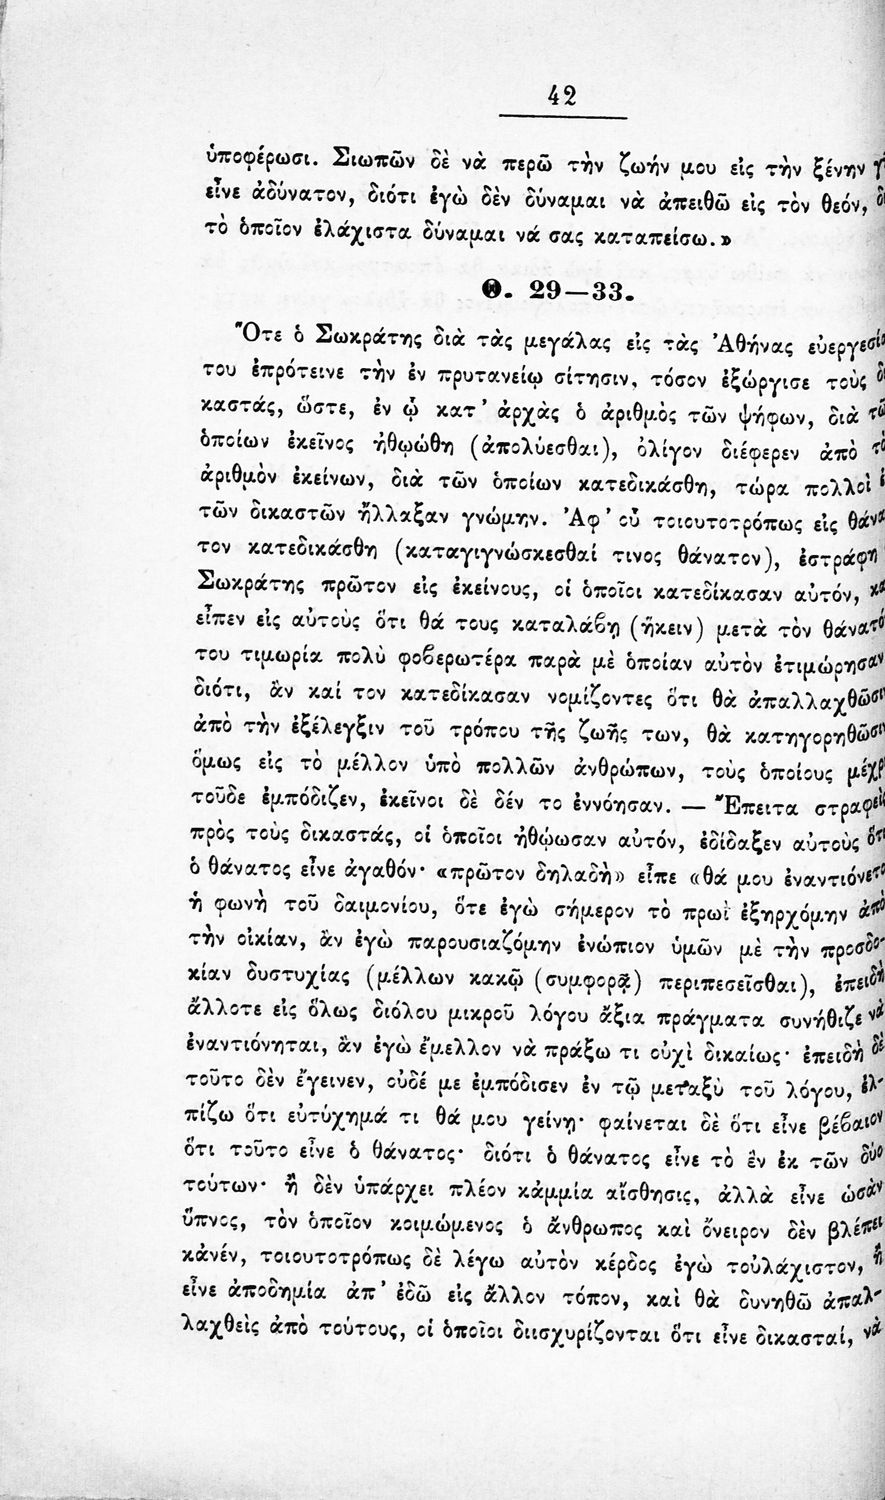 42
ὑποφέρωσι. Σιωπῶν δὲ νὰ περῶ τὴν ζωήν μου εἰς τὴν ξένην
εἶνε ἀδύνατον, διότι ἐγὼ δὲν δύναμαι νὰ ἀπειθῶ εἰς τὸν θεόν,
τὸ ὁποῖον ἐλάχιστα δύναμαι νά σας καταπείσω.»
Θ. 29—33.
Ὅτε ὁ Σωκράτης διὰ τὰς μεγάλας εἰς τὰς Ἀθήνας εὐεργεσί
του ἐπρότεινε τὴν ἐν πρυτανείῳ σίτησιν, τόσον ἐξώργισε τοὺς δι
καστάς, ὥστε, ἐν ᾧ κατ' ἀρχὰς ὁ ἀριθμὸς τῶν ψήφων, διὰ τῶ
ὁποίων ἐκεῖνος ἠθῳώθη (ἀπολύεσθαι), ὀλίγον διέφερεν ἀπὸ τὸ
ἀριθμὸν ἐκείνων, διὰ τῶν ὁποίων κατεδικάσθη, τώρα πολλοὶ
τῶν δικαστῶν ἤλλαξαν γνώμην. Ἀφ' οὗ τοιουτοτρόπως εἰς θάνα
τον κατεδικάσθη (καταγιγνώσκεσθαί τινος θάνατον), ἐστράφη
Σωκράτης πρῶτον εἰς ἐκείνους, οἱ ὁποῖοι κατεδίκασαν αὐτόν, κα
εἶπεν εἰς αὐτοὺς ὅτι θά τους καταλάβῃ (ἥκειν) μετὰ τὸν θάνατό
του τιμωρία πολὺ φοβερωτέρα παρὰ μὲ ὁποίαν αὐτὸν ἐτιμώρησαν
διότι, ἂν καί τον κατεδίκασαν νομίζοντες ὅτι θὰ ἀπαλλαχθῶσιν
ἀπὸ τὴν ἐξέλεγξιν τοῦ τρόπου τῆς ζωῆς των, θὰ κατηγορηθῶσιν
ὅμως εἰς τὸ μέλλον ὑπὸ πολλῶν ἀνθρώπων, τοὺς ὁποίους μέχρι
τοῦδε ἐμπόδιζεν, ἐκεῖνοι δὲ δέν το ἐννόησαν. — Ἔπειτα στραφεὶς
πρὸς τοὺς δικαστάς, οἱ ὁποῖοι ἠθῴωσαν αὐτόν, ἐδίδαξεν αὐτοὺς ὅτι
ὁ θάνατος εἶνε ἀγαθόν· «πρῶτον δηλαδὴ» εἶπε «θά μου ἐναντιόνετο
ἡ φωνὴ τοῦ δαιμονίου, ὅτε ἐγὼ σήμερον τὸ πρωῒ ἐξηρχόμην ἀπὸ
τὴν οἰκίαν, ἂν ἐγὼ παρουσιαζόμην ἐνώπιον ὑμῶν μὲ τὴν προσδο-
κίαν δυστυχίας (μέλλων κακῷ (συμφορᾷ) περιπεσεῖσθαι), ἐπειδὴ
ἄλλοτε εἰς ὅλως διόλου μικροῦ λόγου ἄξια πράγματα συνήθιζε νὰ
ἐναντιόνηται, ἂν ἐγὼ ἔμελλον νὰ πράξω τι οὐχὶ δικαίως· ἐπειδὴ δὲ
τοῦτο δὲν ἔγεινεν, οὐδέ με ἐμπόδισεν ἐν τῷ μεταξὺ τοῦ λόγου, ἐλ-
πίζω ὅτι εὐτύχημά τι θά μου γείνῃ· φαίνεται δὲ ὅτι εἶνε βέβαιον
ὅτι τοῦτο εἶνε ὁ θάνατος· διότι ὁ θάνατος εἶνε τὸ ἓν ἐκ τῶν δύο
τούτων· ἢ δὲν ὑπάρχει πλέον κάμμία αἴσθησις, ἀλλὰ εἶνε ὡσὰν
ὕπνος, τὸν ὁποῖον κοιμώμενος ὁ ἄνθρωπος καὶ ὄνειρον δὲν βλέπει
κἀνέν, τοιουτοτρόπως δὲ λέγω αὐτὸν κέρδος ἐγὼ τοὐλάχιστον, ἢ
εἶνε ἀποδημία ἀπ' ἐδῶ εἰς ἄλλον τόπον, καὶ θὰ δυνηθῶ ἀπαλ-
λαχθεὶς ἀπὸ τούτους, οἱ ὁποῖοι διισχυρίζονται ὅτι εἶνε δικασταί, νὰ